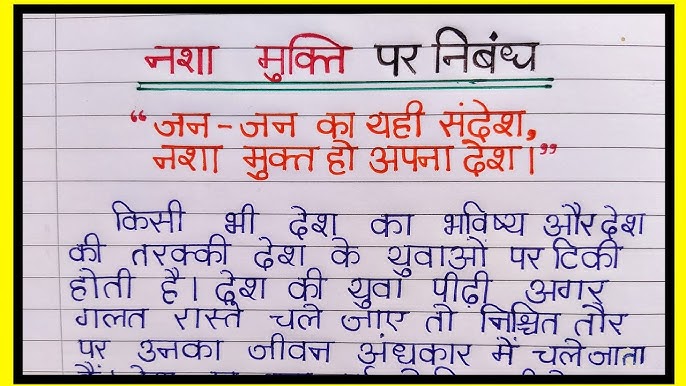 नशा मुक्ति पर निबंध
“ जन-जन का यही संदेश,
नशा मुक्त हो अपना देश।”
किसी भी देश का भविष्य और देश
की तरक्की देश के युवाओं पर टिकी
होती है। देश की युवा पीढ़ी अगर
गलत रास्ते चले जाए तो निश्चित तौर
पर उनका जीवन अंधकार में चले जाता